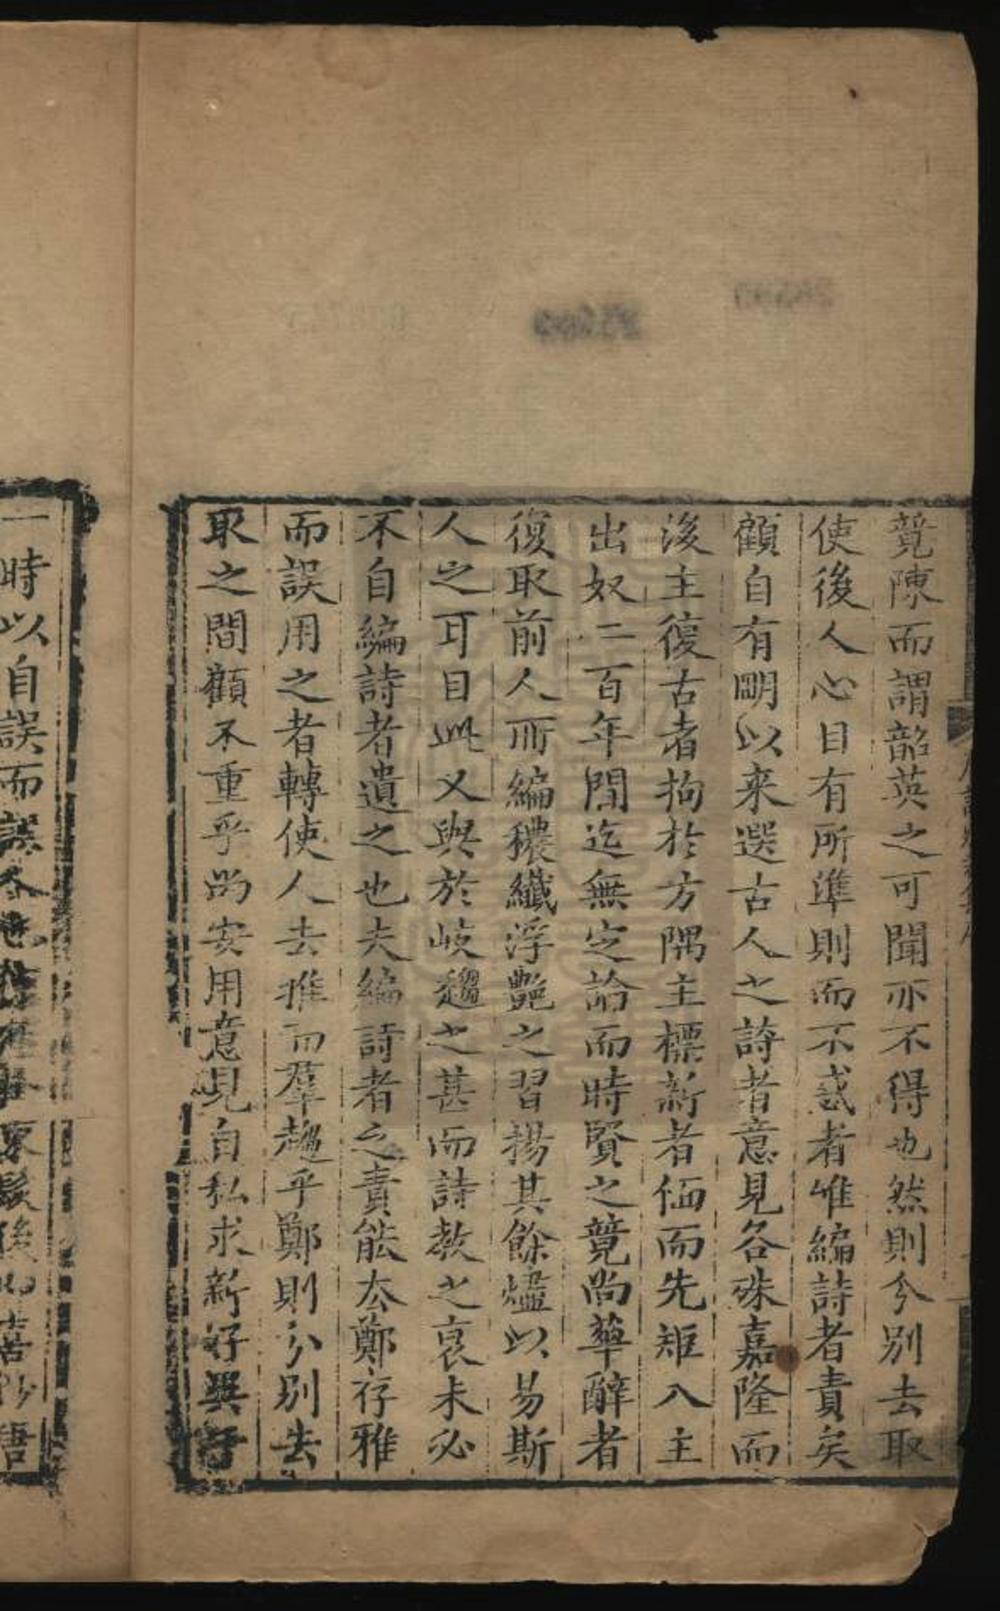 竟陳而謂韶英之可聞亦不得也然則分别去取
使後人心目有所準則而不惑者唯編詩者責矣
顧自有明以来選古人之詩者意見各殊嘉隆而
後主復古者拘扵方隅主標新者偭而先矩入主
出奴二百年間迄無定論而時賢之競尚華辭者
復取前人所編穠纖浮艶之習揚其餘燼以易斯
人之耳目此又與於岐趨之甚而詩教之衰未必
不自編詩者遺之也夫編詩者之責能去鄭存雅
而誤用之者轉使人去雅而羣趨乎鄭則分别去
取之間顧不重乎尚安用意見自私求新好異于
一時以自誤而誤